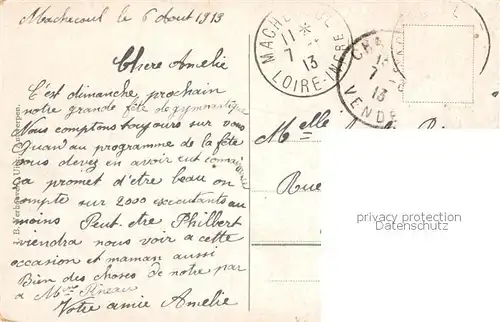 Machecoul le 6 Aout 1913
Chere Amelie
C'est dimanche prochain
notre grande fête de gymnastique
Nous comptons toujours sur vous
Quand au programme de la fête
vous devez en avoir eut
ça promet d'être beau on
compte sur 2000 executants au
moins Peut-etre Philbert
viendra nous voir a cette
occasion et maman aussi
Bien des choses de notre par
a Mme Pineau
Votre amie Amelie
MACHECOUL
11 *
7
13
LOIRE-INFRE
7
13
VENDEE
Melle
Rue
privacy protection
watermark